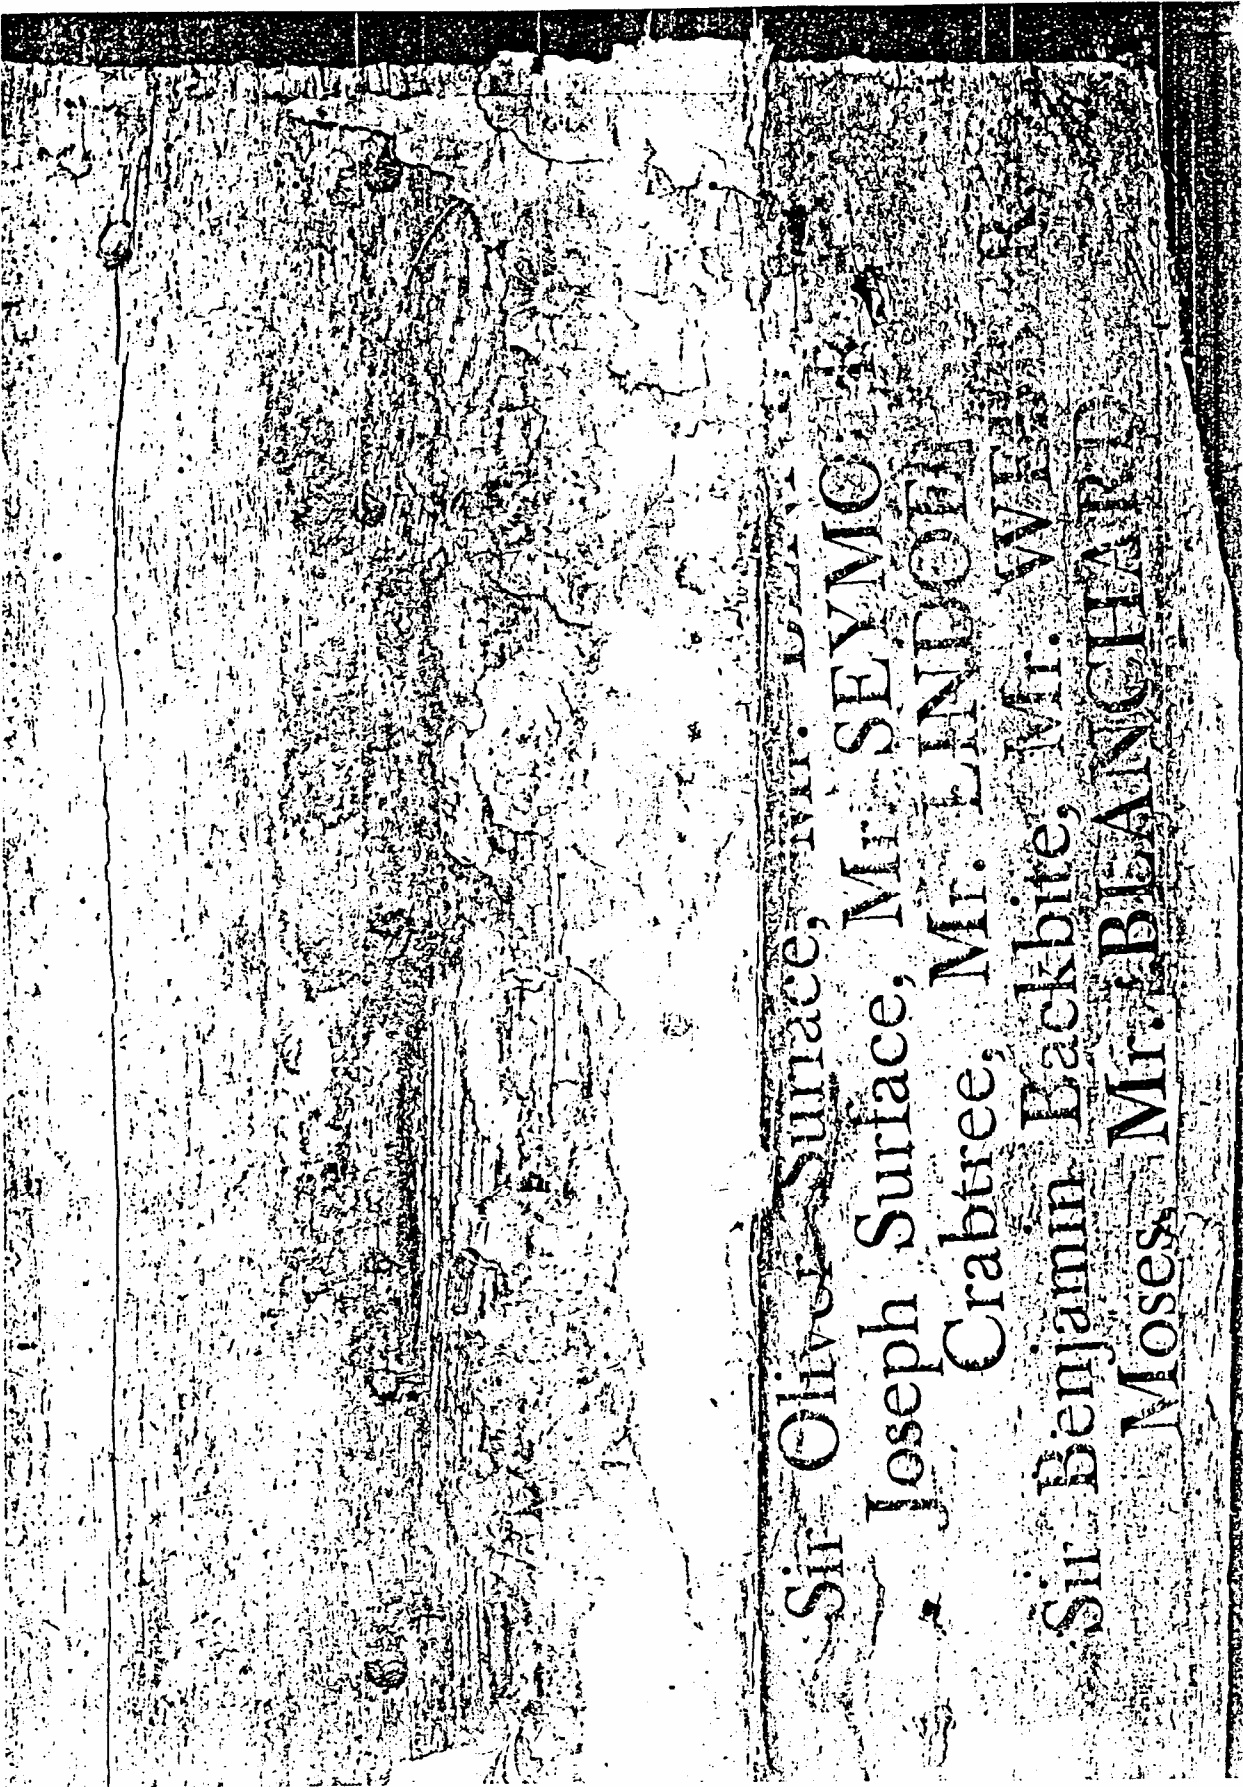 Sir Oliver Surface, Mr.
Joseph Surface, Mr. SEYMO
Crabtree, Mr. LINDOE
Sir Benjamin Backbite, Mr.
Moses, Mr. BLANCHARD